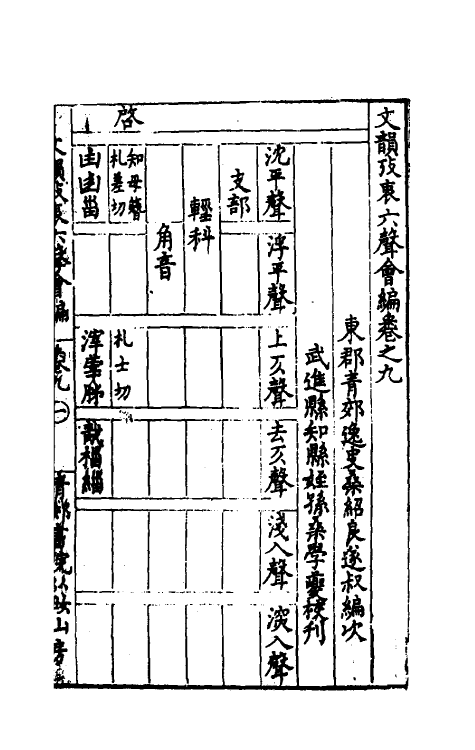 文韻攷衷六聲會編卷之九
東郡青郊逸叟桑紹良遂叔編次
武進縣知縣姪孫桑學夔校刊
沈平聲
浮平聲
上仄聲
去仄聲
淺入聲
深入聲
支部
輕科
角音
啓
知母簪
札差切
札士切
甾
滓
緇
文韻攷衷六聲會編
卷九
一
青郊書院
山房